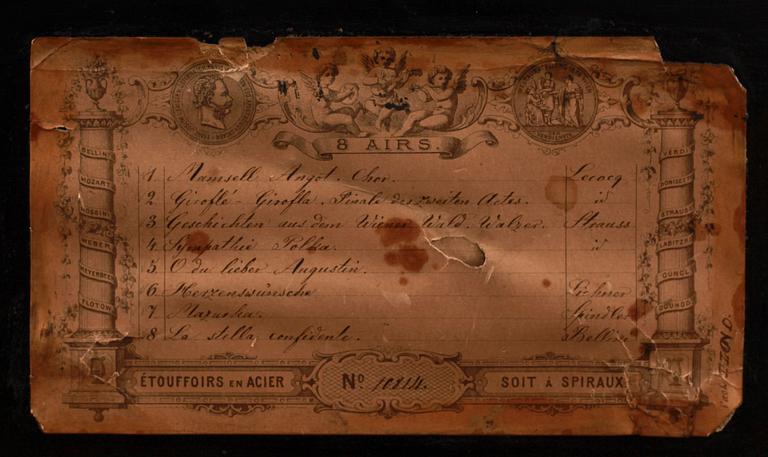 8 AIRS.
BELLINI
MOZART
ROSSINI
WEBER
MEYERBEER
FLOTOW
VERDI
DONISETTI
STRAUSS
LABITZKY
GUNGL
GOUNOD
1 Mamsell Angot. Chor. Lecocq
2 Giroflé-Girofla, Finale des zweiten Actes. id
3 Geschichten aus dem Wiener Wald. Walzer. Strauss
4 Sympathie Polka. id
5 O du lieber Augustin.
6 Herzenswünsche
7 Mazurka. Spindler
8 La stella confidente.
ÉTOUFFOIRS EN ACIER
No 10814.
SOIT À SPIRAUX